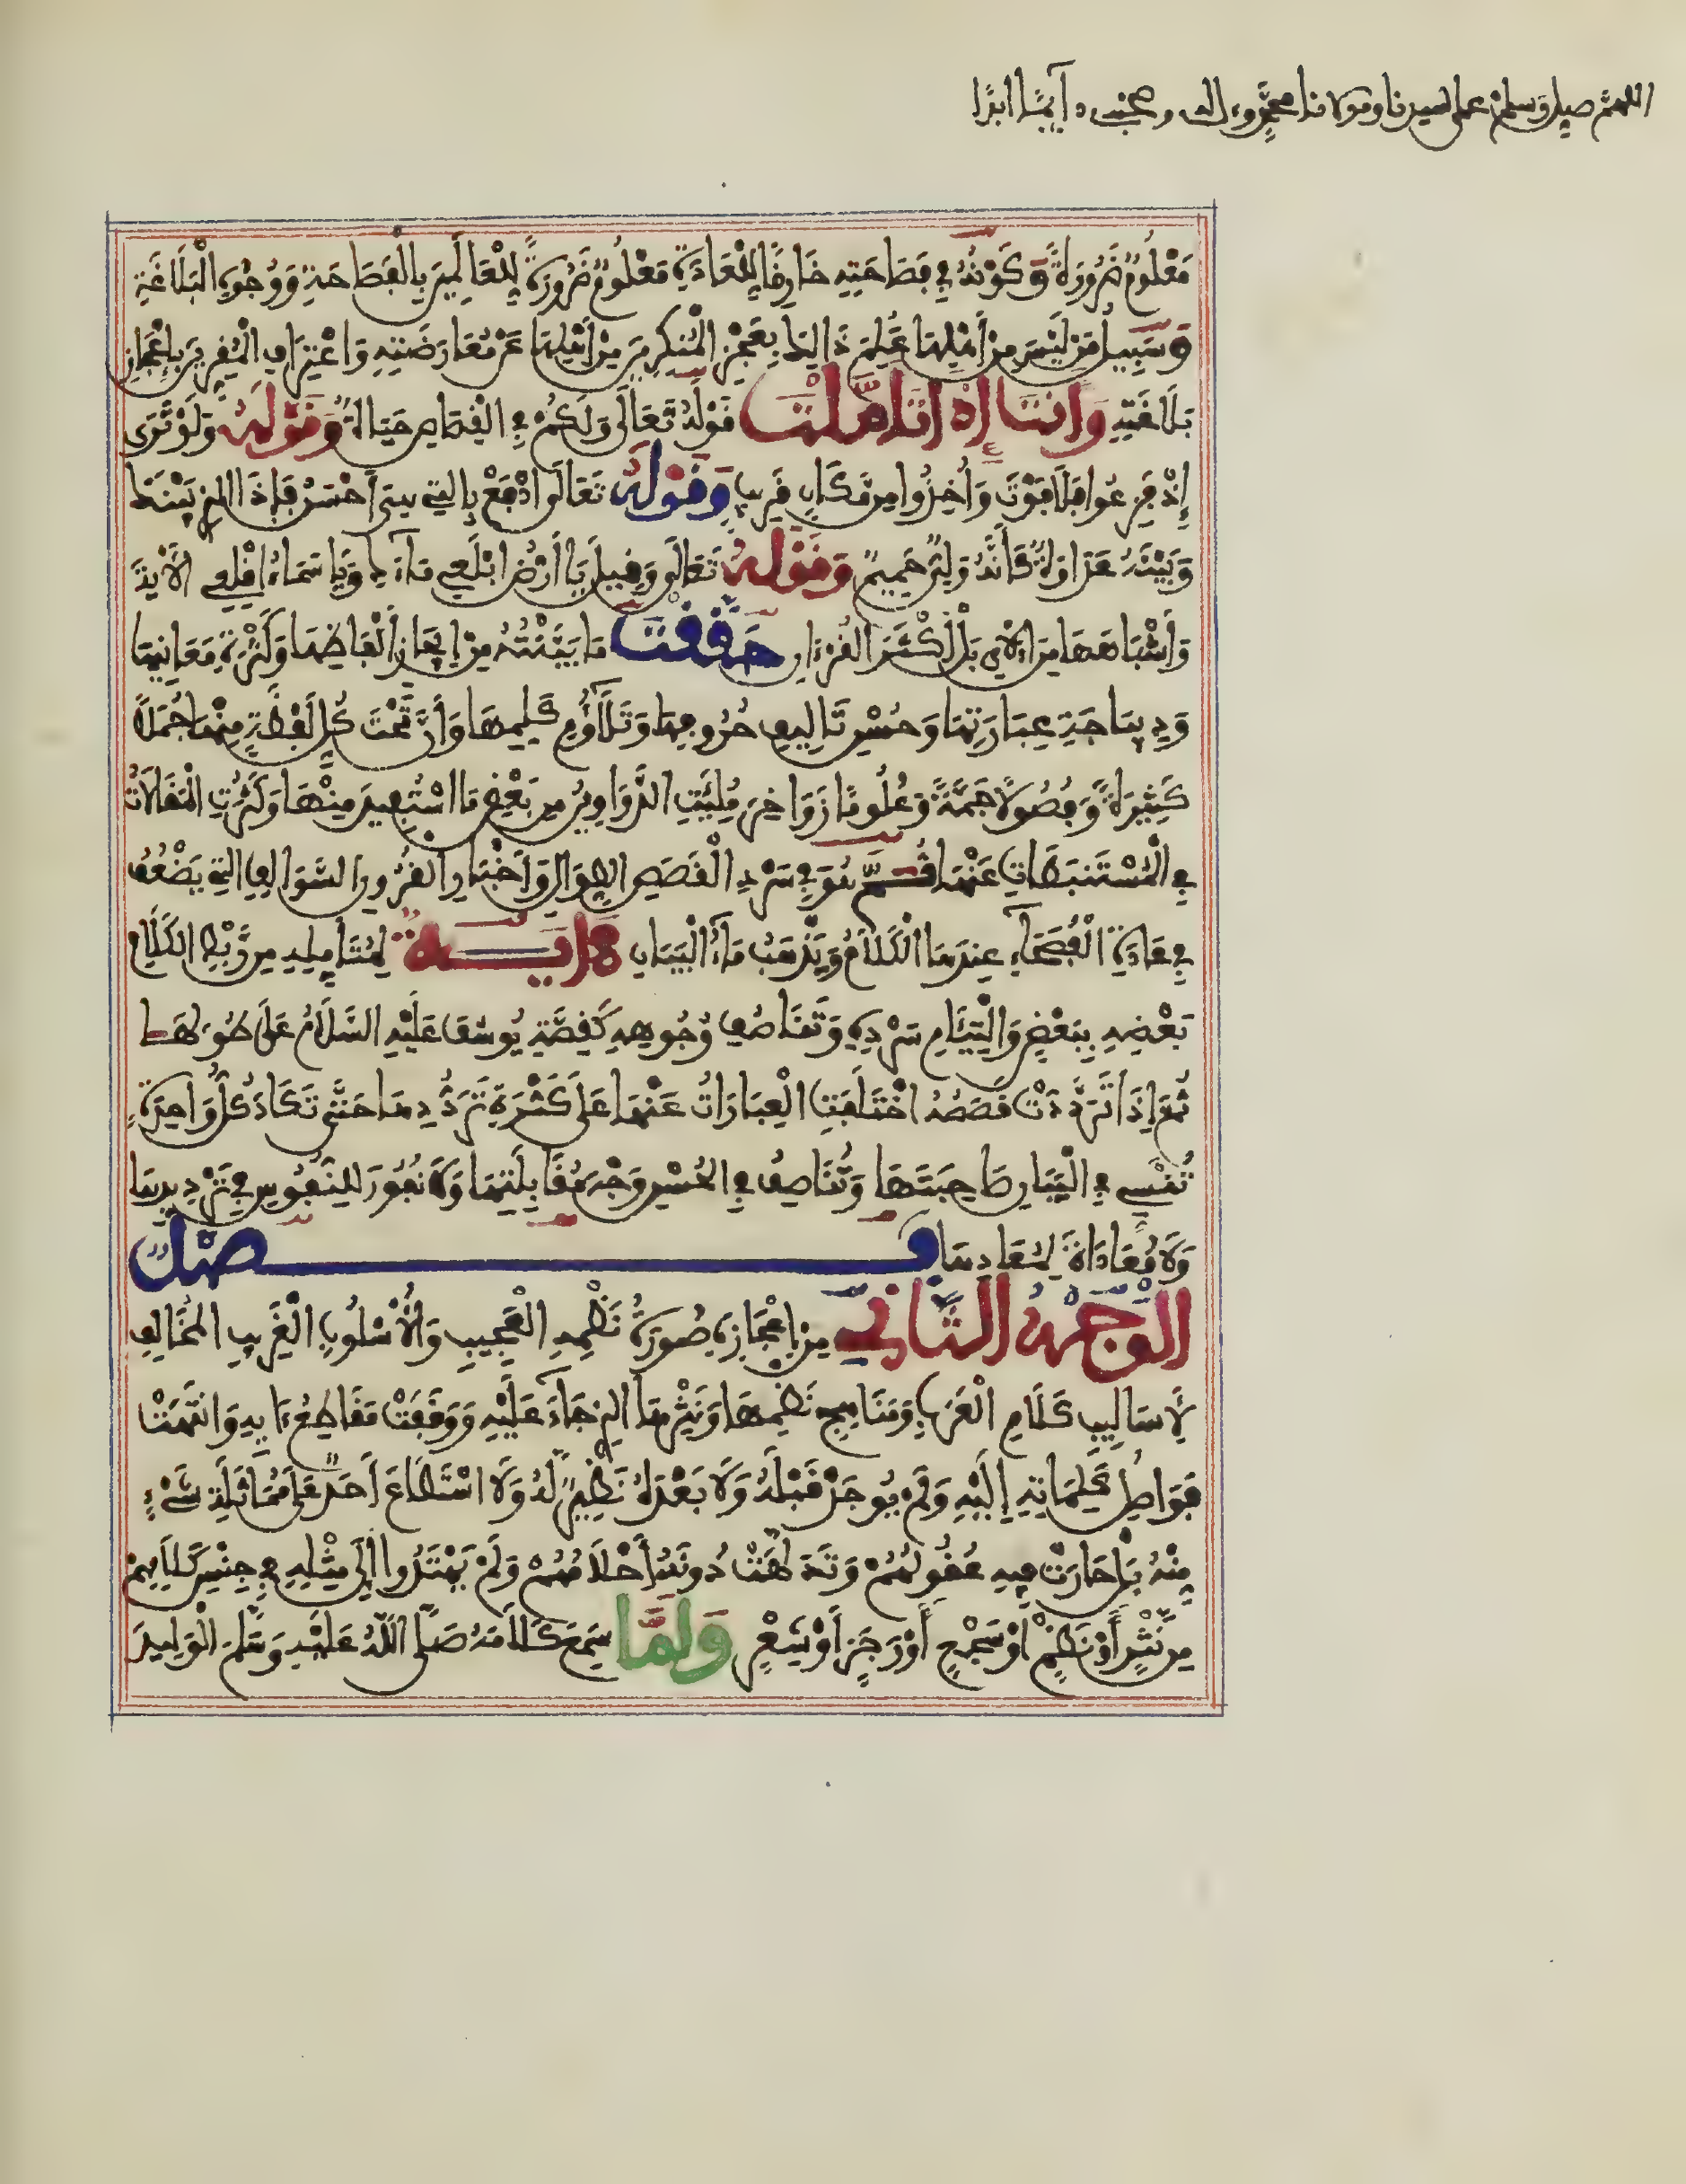 اللهم صل وسلم على سيدنا ومولانا محمد وءاله وصحبه دآيما ابدا
مَعْلُومٌ ضَرُورَةً وَكَوْنُهُ فِي فَصَاحَتِهِ خَارِقًا لِلْعَادَةِ مَعْلُومٌ ضَرُورَةً لِلْعَالِمِينَ بِالْفَصَاحَةِ وَوُجُوهِ الْبَلَاغَةِ
وَسَبِيلُ مَنْ لَيْسَ مِنْ أَهْلِهَا عَلِمَ ذَالِكَ بِعَجْزِ الْمُنْكِرِينَ مِنْ أَهْلِهَا عَنْ مُعَارَضَتِهِ وَاعْتِرَافِ الْمُقِرِّينَ بِإِعْجَازِ
بَلَاغَتِهِ وَأَنْتَ إِذَا تَأَمَّلْتَ قَوْلَهُ تَعَالَى وَلَكُمْ فِي الْقِصَاصِ حَيَاةٌ وَقَوْلَهُ وَلَوْ تَرَى
إِذْ فَزِعُوا فَلَا فَوْتَ وَأُخِذُوا مِن مَّكَانٍ قَرِيبٍ وَقَوْلَهُ تَعَالَى ادْفَعْ بِالتِي هِيَ أَحْسَنُ فَإِذَا الذِي بَيْنَكَ
وَبَيْنَهُ عَدَاوَةٌ كَأَنَّهُ وَلِيٌّ حَمِيمٌ وَقَوْلَهُ تَعَالَى وَقِيلَ يَا أَرْضُ ابْلَعِي مَآءَكِ وَيَا سَمَاءُ اقْلِعِي الْآيَةَ
وَأَشْبَاهَهَا مِنَ الْآيِ بَلْ أَكْثَرَ الْقُرْءَانِ حَقَّقْتَ مَا بَيَّنْتُهُ مِنْ إِيجَازِ أَلْفَاظِهَا وَكَثْرَةِ مَعَانِيهَا
وَدِيبَاجَةِ عِبَارَتِهَا وَحُسْنِ تَالِيفِ حُرُوفِهَا وَتَلَاؤُمِ كَلِمِهَا وَأَنَّ تَحْتَ كُلِّ لَفْظَةٍ مِنْهَا جُمَلًا
كَثِيرَةً وَفُصُولًا جَمَّةً وَعُلُومًا زَوَاخِرَ مُلِئَتِ الدَّوَاوِينُ مِن بَعْضِ مَا اسْتُفِيدَ مِنْهَا وَكَثُرَتِ الْمَقَالَاتُ
فِي الْمُسْتَنبَطَاتِ عَنْهَا ثُمَّ هُوَ فِي سَرْدِ الْقَصَصِ الطِّوَالِ وَأَخْبَارِ الْقُرُونِ السَّوَالِفِ التِي يَضْعُفُ
فِي عَادَةِ الْفُصَحَآءِ عِندَهَا الْكَلَامُ وَيَذْهَبُ مَآءُ الْبَيَانِ ءَايَةٌ لِمُتَأَمِّلِهِ مِن رَّبْطِ الْكَلَامِ
بَعْضِهِ بِبَعْضٍ وَالْتِئَامِ سَرْدِهِ وَتَنَاصُفِ وُجُوهِهِ كَقِصَّةِ يُوسُفَ عَلَيْهِ السَّلَامُ عَلَى طُولِهَا
ثُمَّ إِذَا تَرَدَّدَتْ قَصَصُهُ اخْتَلَفَتِ الْعِبَارَاتُ عَنْهَا عَلَى كَثْرَةِ تَرَدُّدِهَا حَتَّى تَكَادَ كُلُّ وَاحِدَةٍ
تُنْسِي فِي الْبَيَانِ صَاحِبَتَهَا وَتُنَاصِفُ فِي الْحُسْنِ وَجْهَ مُقَابِلَتِهَا وَلَا نُفُورَ لِلنُّفُوسِ فِي تَرْدِيدِهَا
وَلَا مُعَادَاةَ لِمُعَادِهَا فَصْلٌ
الْوَجْهُ الثَّانِي مِنْ إِعْجَازِهِ صُورَةُ نَظْمِهِ الْعَجِيبِ وَالْأُسْلُوبِ الْغَرِيبِ الْمُخَالِفِ
لِأَسَالِيبِ كَلَامِ الْعَرَبِ وَمَنَاهِجِ نَظْمِهَا وَنَثْرِهَا الذِي جَآءَ عَلَيْهِ وَوَقَفَتْ مَقَاطِعُ ءَايِهِ وَانْتَهَتْ
فَوَاصِلُ كَلِمَاتِهِ إِلَيْهِ وَلَمْ يُوجَدْ قَبْلَهُ وَلَا بَعْدَهُ نَظِيرٌ لَهُ وَلَا اسْتَطَاعَ أَحَدٌ عَلَى مُمَاثَلَةِ شَيْءٍ
مِنْهُ بَلْ حَارَتْ فِيهِ عُقُولُهُمْ وَتَدَلَّهَتْ دُونَهُ أَحْلَامُهُمْ وَلَمْ يَهْتَدُوا إِلَى مِثْلِهِ فِي جِنْسِ كَلَامِهِمْ
مِن نَّثْرٍ أَوْ نَظْمٍ أَوْ سَجْعٍ أَوْ رَجَزٍ أَوْ شِعْرٍ وَلَمَّا سَمِعَ كَلَامَهُ صَلَّى اللَّهُ عَلَيْهِ وَسَلَّمَ الْوَلِيدُ